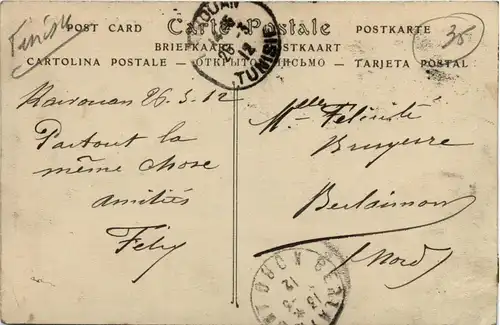 Tunisie
35
POST CARD Carte Postale POSTKARTE
BRIEFKAART
CARTOLINA POSTALE — ОТКРЫТОЕ ПИСЬМО — TARJETA POSTAL
TUNISIE
12
Kairouan 26.3.12
Partout la
même chose
Amitiés
Fély
Melle Félicité
Bruyerre
Berlaimont
(Nord)